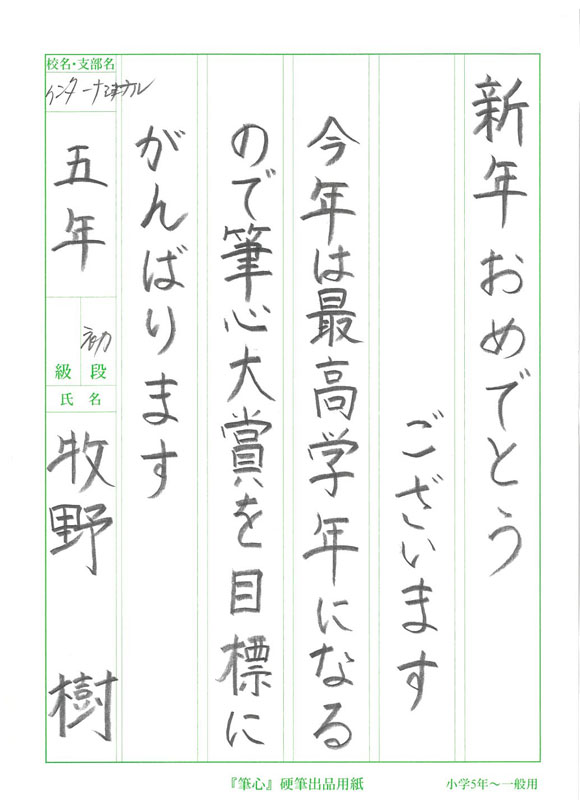 新年おめでとう
ございます
今年は最高学年になる
ので筆心大賞を目標に
がんばります
校名・支部名
インターナショナル
五年
初
段
級
氏名
牧野 樹
『筆心』硬筆出品用紙
小学5年〜一般用